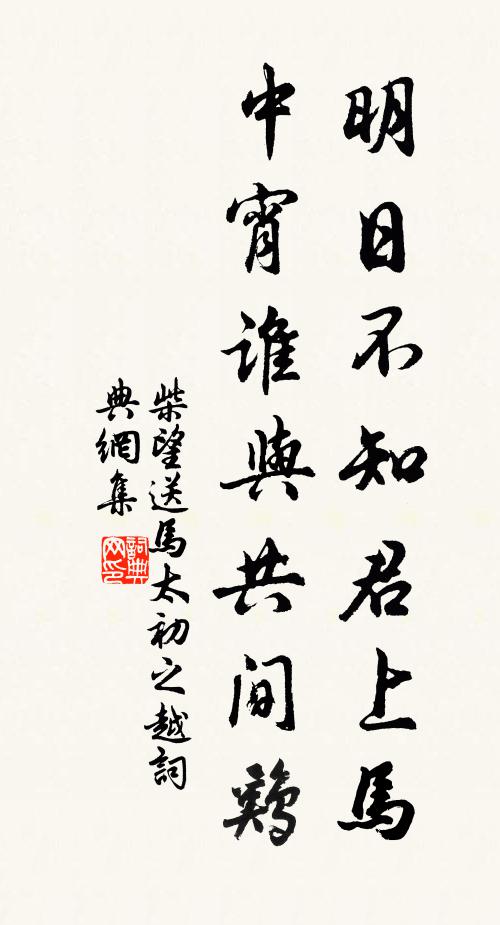 明日不知君上馬
中宵誰與共间鷄
柴望送馬太初之越詞
典網集
詞典
网印